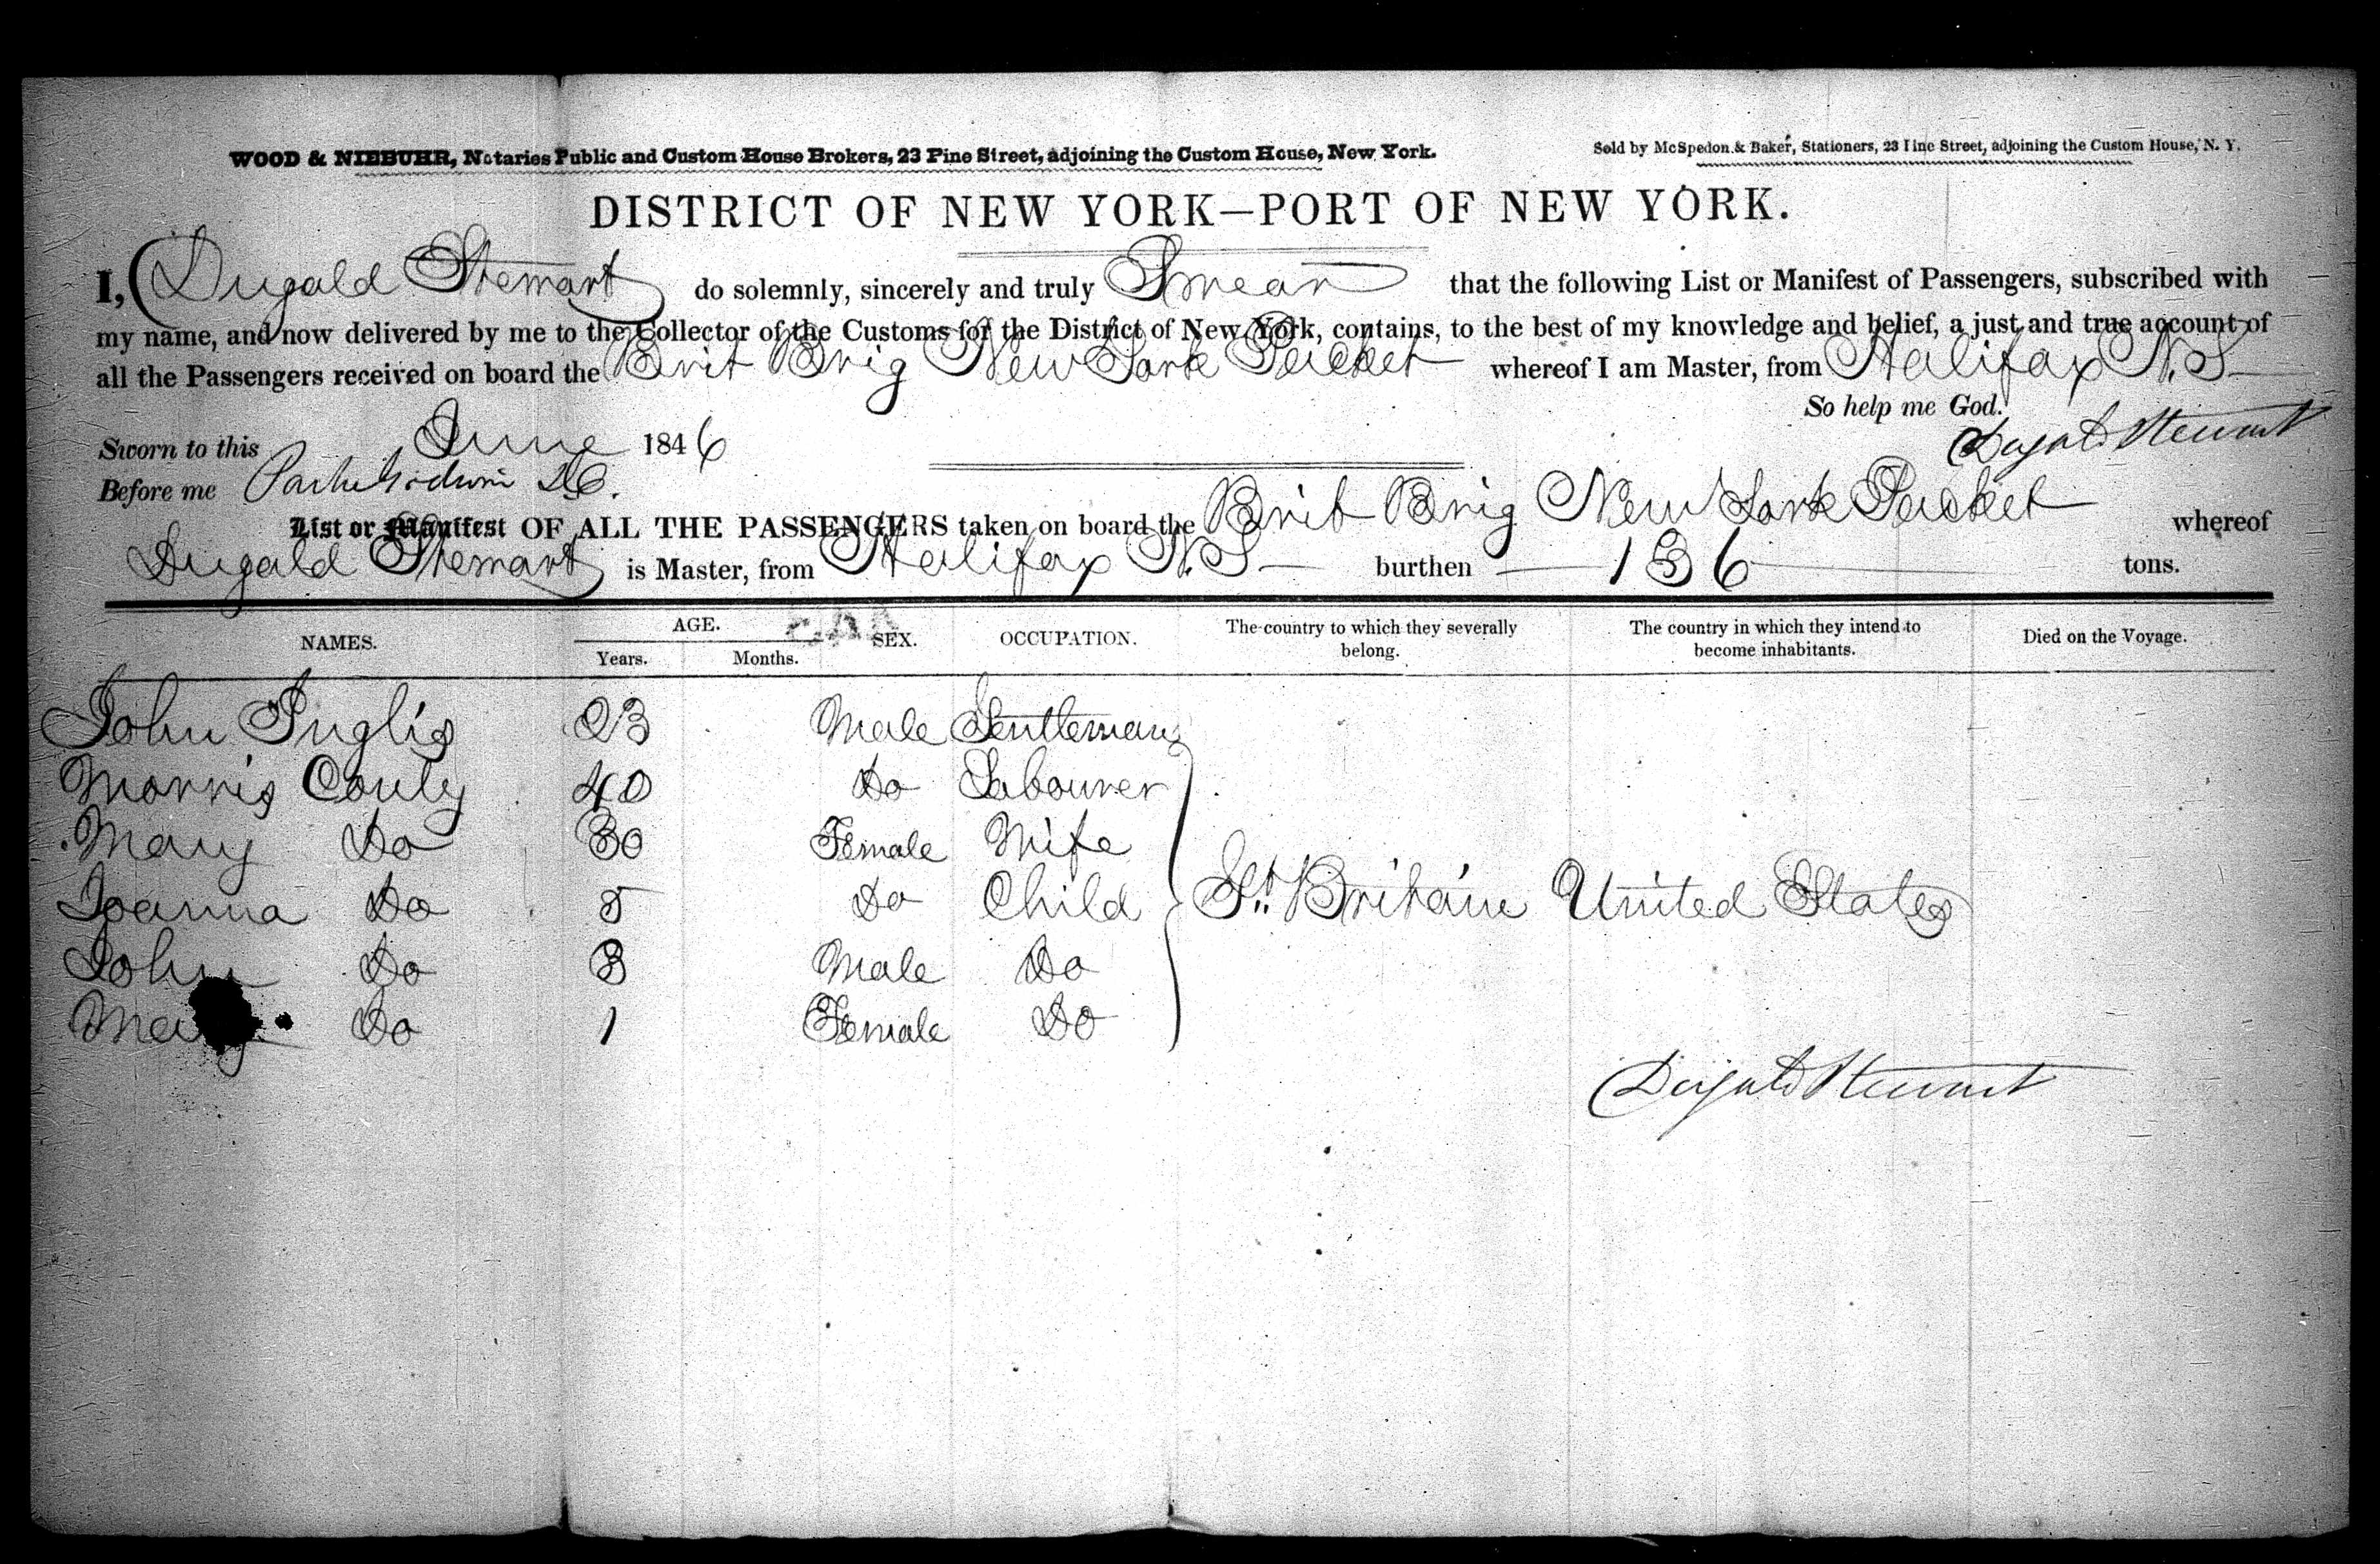 WOOD & NIEBUHR, Notaries Public and Custom House Brokers, 23 Pine Street, adjoining the Custom House, New York.
Sold by McSpedon & Baker, Stationers, 23 Pine Street, adjoining the Custom House, N. Y.
DISTRICT OF NEW YORK—PORT OF NEW YORK.
I, Dugald Stewart do solemnly, sincerely and truly Swear that the following List or Manifest of Passengers, subscribed with
my name, and now delivered by me to the Collector of the Customs for the District of New York, contains, to the best of my knowledge and belief, a just and true account of
all the Passengers received on board the Brit Brig New York Packet whereof I am Master, from Halifax N.S
So help me God.
Sworn to this June 1846
Dugald Stewart
Before me Parke Godwin D.C.
List or Manifest OF ALL THE PASSENGERS taken on board the Brit Brig New York Packet whereof
Dugald Stewart is Master, from Halifax N.S burthen 136 tons.
NAMES. AGE. Years. Months. SEX. OCCUPATION. The country to which they severally belong. The country in which they intend to become inhabitants. Died on the Voyage.
John Inglis 23 Male Gentleman
Morris Couly 40 Do Labourer
Mary Do 30 Female Wife
Joanna Do 5 Do Child Gt. Britain United States
John Do 3 Male Do
Do 1 Female Do
Dugald Stewart